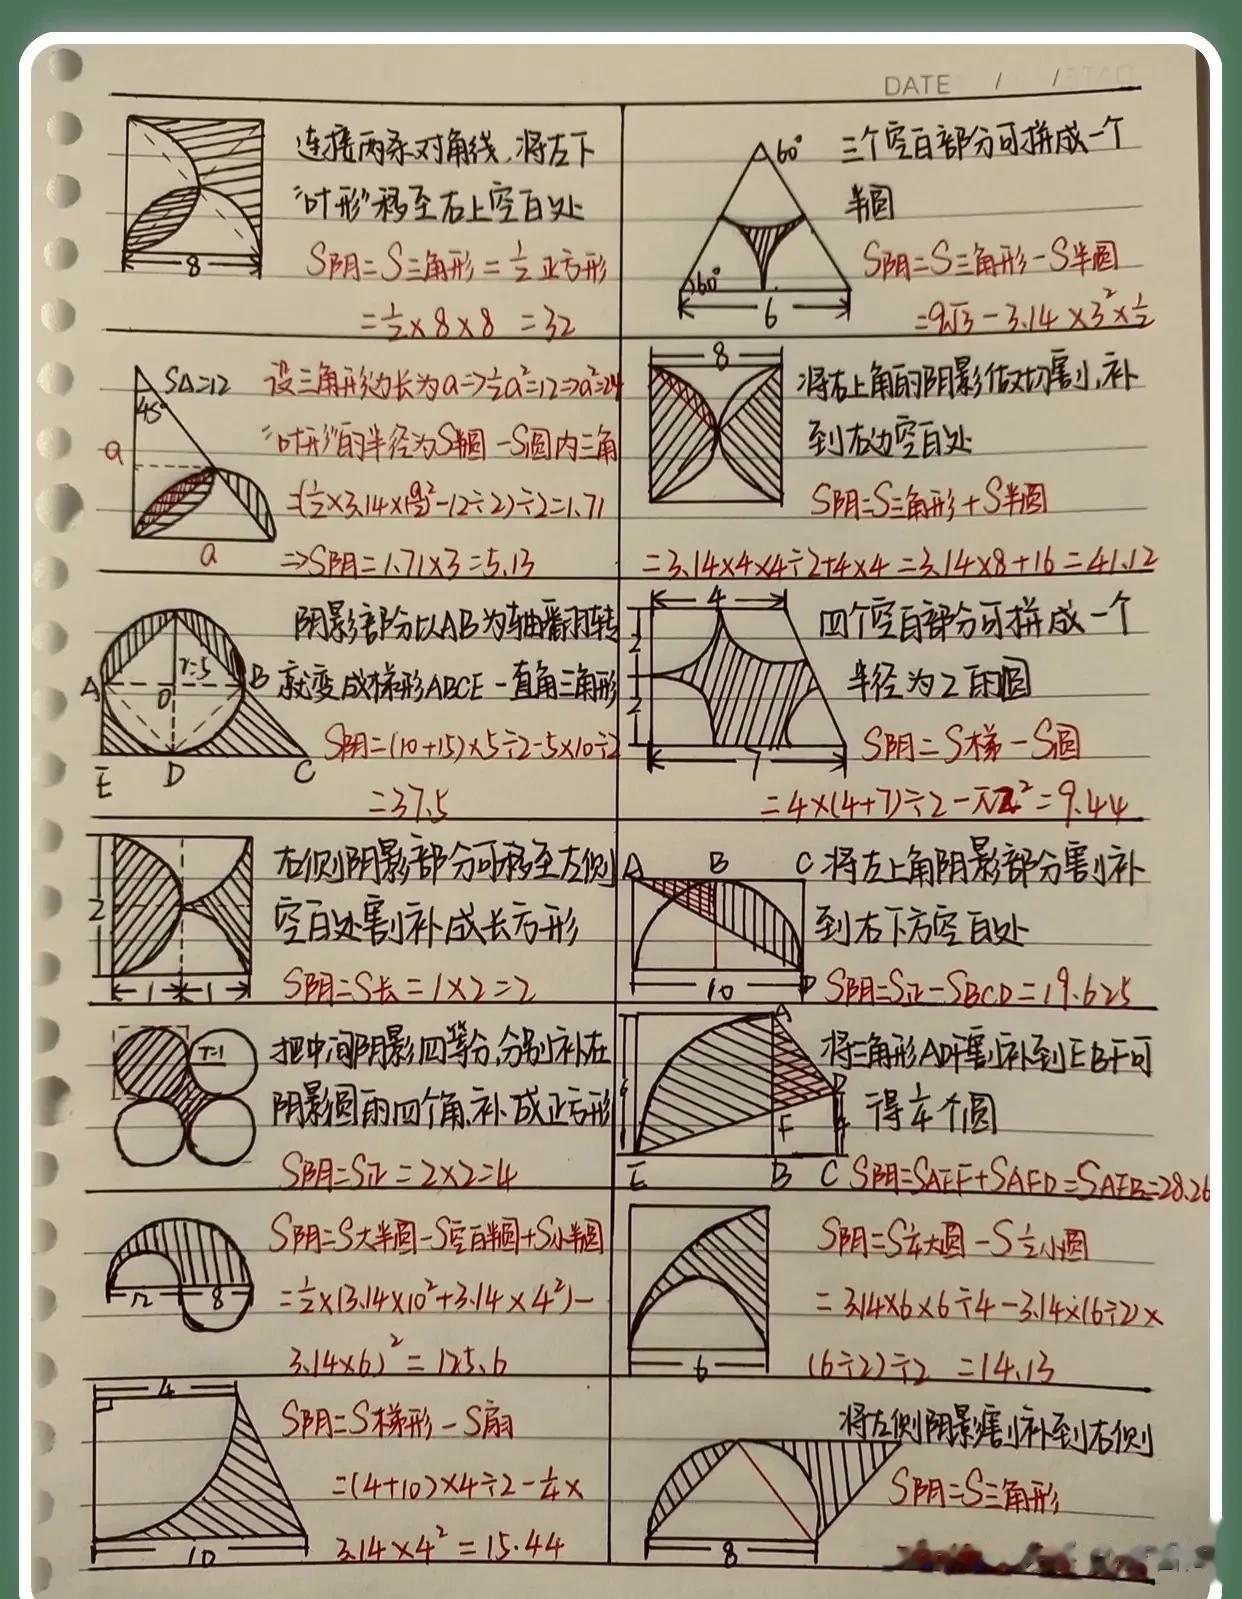 DATE / /
连接两条对角线，将左下
"叶形"移至右上空白处
S阴=S三角形=½正方形
=½×8×8=32
8
60°
60°
6
三个空白部分可拼成一个
半圆
S阴=S三角形-S半圆
=9√3-3.14×3²×½
S△=12
45°
a
a
设三角形边长为a=>½a²=12=>a²=24
"叶形"的半径为S半圆-S圆内三角
=(½×3.14×(a/2)²-12÷2)÷2=1.71
=>S阴=1.71×3=5.13
8
将右上角的阴影做切割,补
到左边空白处
S阴=S三角形+S半圆
=3.14×4×4÷2+4×4=3.14×8+16=41.12
A
r=5
O
B
E
D
C
阴影部分以AB为轴翻转
就变成梯形ABCE-直角三角形
S阴=(10+15)×5÷2-5×10÷2
=37.5
4
2
2
7
四个空白部分可拼成一个
半径为2的圆
S阴=S梯-S圆
=4×(4+7)÷2-π2²=9.44
2
1
1
右侧阴影部分可移至左侧
空白处割补成长方形
S阴=S长=1×2=2
A
B
C
10
D
将左上角阴影部分割补
到右下方空白处
S阴=S正-SBCD=19.625
r=1
把中间阴影四等分,分别补在
阴影圆的四个角,补成正方形
S阴=S正=2×2=4
A
D
F
4
E
B
C
将三角形ADF割补到EBF可
得¼个圆
S阴=SAEF+SAFD=SAEB=28.26
12
8
S阴=S大半圆-S空白半圆+S小半圆
=½×(3.14×10²+3.14×4²)-
3.14×6)²=125.6
6
S阴=S¼大圆-S½小圆
=3.14×6×6÷4-3.14×(6÷2)×
(6÷2)÷2=14.13
4
10
S阴=S梯形-S扇
=(4+10)×4÷2-¼×
3.14×4²=15.44
8
将左侧阴影割补到右侧
S阴=S三角形